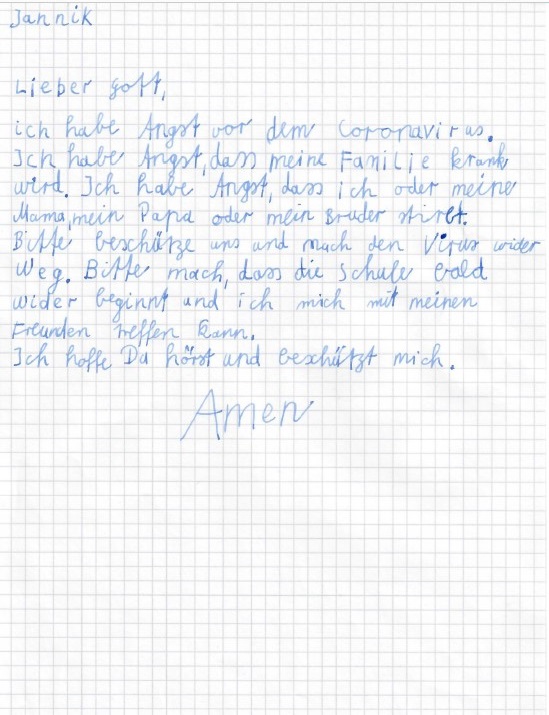 Jannik
Lieber Gott,
ich habe Angst vor dem Coronavirus.
Ich habe Angst, dass meine Familje krank
wird. Ich habe Angst, dass ich oder meine
Mama, mein Papa oder mein Bruder stirbt.
Bitte beschütze uns und mach den Virus wider
Weg. Bitte mach, dass die Schule bald
wider beginnt und ich mich mit meinen
Freunden treffen kann.
Ich hoffe Du hörst und beschützt mich.
Amen